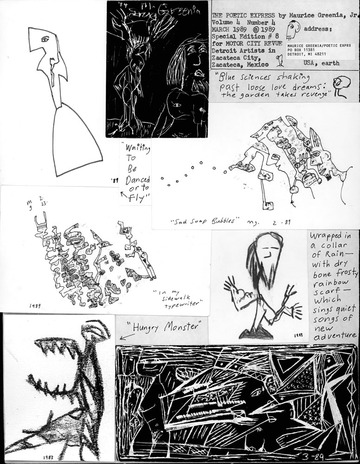 THE POETIC EXPRESS by Maurice Greenia, Jr.
Volume 4 Number 4
MARCH 1989 @ 1989
Special Edition # 8
for MOTOR CITY REVUE
Detroit Artists in
Zacateca City,
Zacateca, Mexico
address:
MAURICE GREENIA/POETIC EXPRE
PO BOX 11391
DETROIT, MI 48211
USA, earth
"Blue sciences shaking
past loose love dreams:
the garden takes revenge"
"Waiting
To
Be
Danced
or to
fly"
'89
"Sad Soap Bubbles" mg. 2-89.
"in my
sidewalk
typewriter"
1989
Wrapped in
a collar
of Rain—
with dry
bone frosty
rainbow
scarf—
which
sings quiet
songs of
new
adventure
"Hungry Monster"
3-89